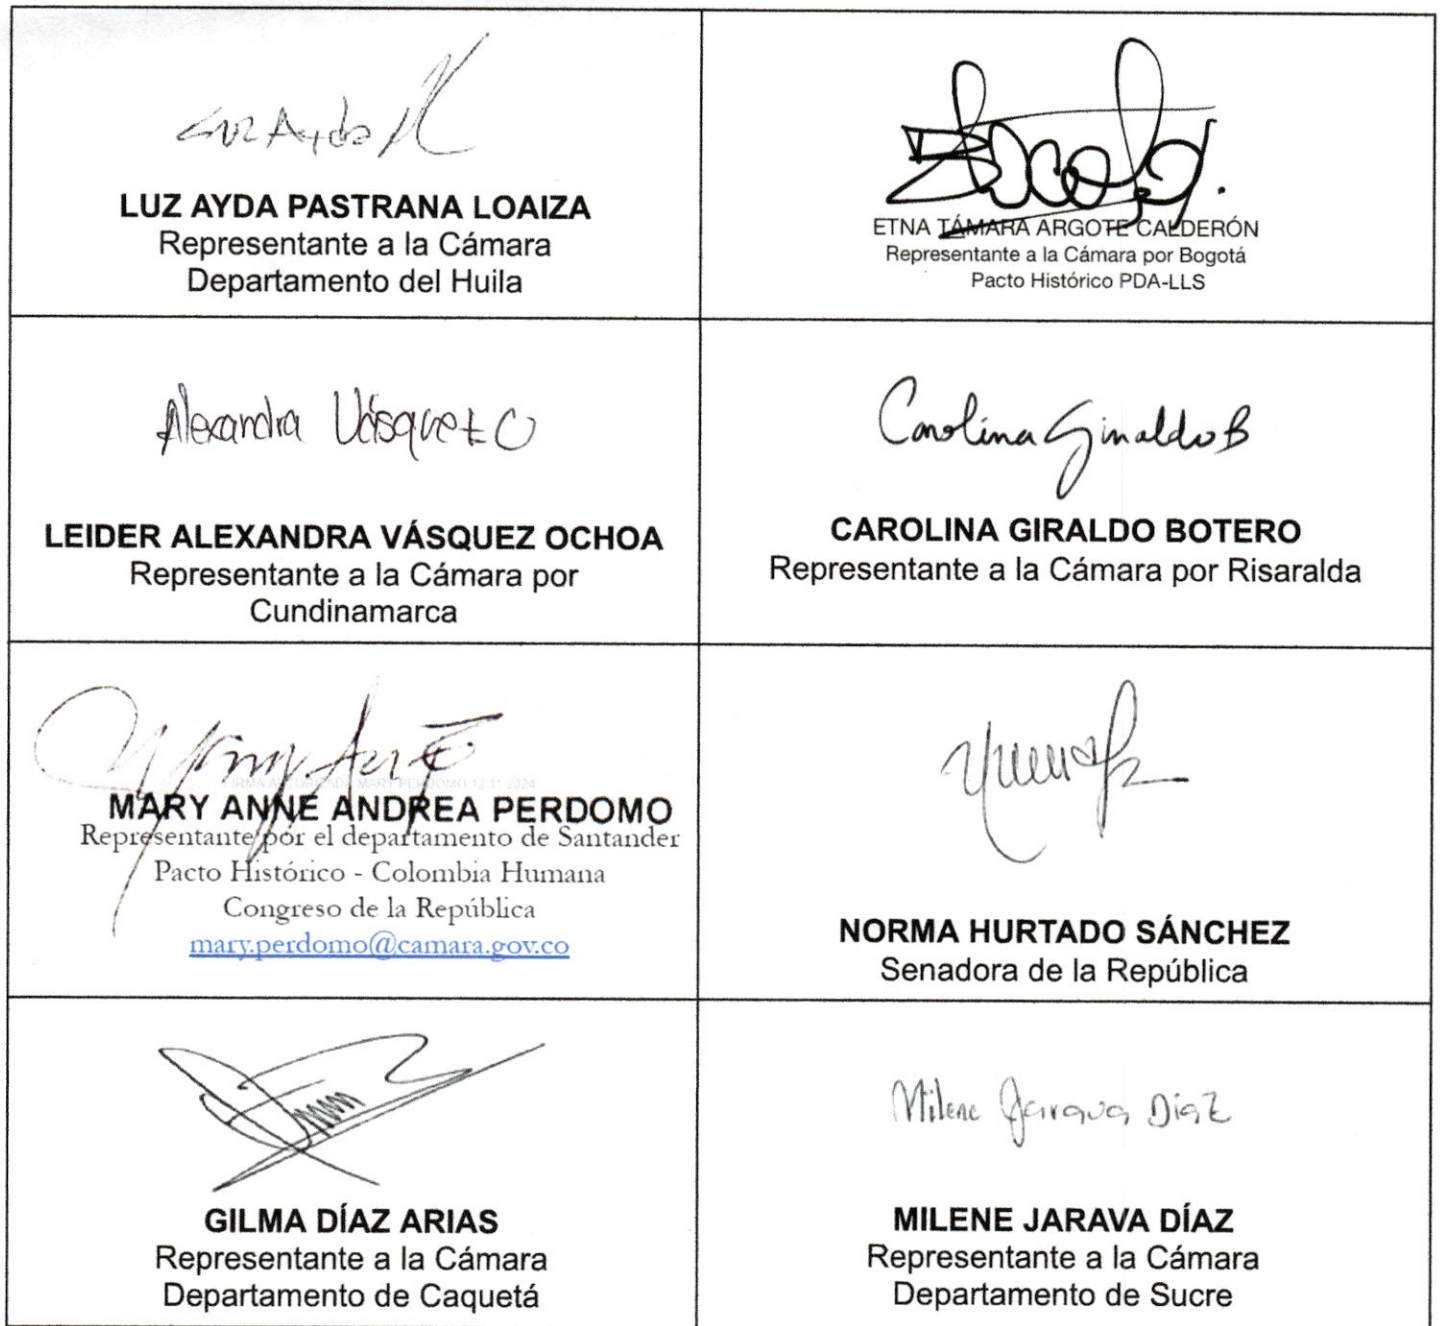 Luz Ayda
LUZ AYDA PASTRANA LOAIZA
Representante a la Cámara
Departamento del Huila
ETNA TÁMARA ARGOTE CALDERÓN
Representante a la Cámara por Bogotá
Pacto Histórico PDA-LLS
Alexandra Vásquez O
LEIDER ALEXANDRA VÁSQUEZ OCHOA
Representante a la Cámara por
Cundinamarca
Carolina Giraldo B
CAROLINA GIRALDO BOTERO
Representante a la Cámara por Risaralda
FIRMA AUTORIZADA MARY PERDOMO 12 11 2024
MARY ANNE ANDREA PERDOMO
Representante por el departamento de Santander
Pacto Histórico - Colombia Humana
Congreso de la República
mary.perdomo@camara.gov.co
NORMA HURTADO SÁNCHEZ
Senadora de la República
GILMA DÍAZ ARIAS
Representante a la Cámara
Departamento de Caquetá
Milene Jarava Diaz
MILENE JARAVA DÍAZ
Representante a la Cámara
Departamento de Sucre